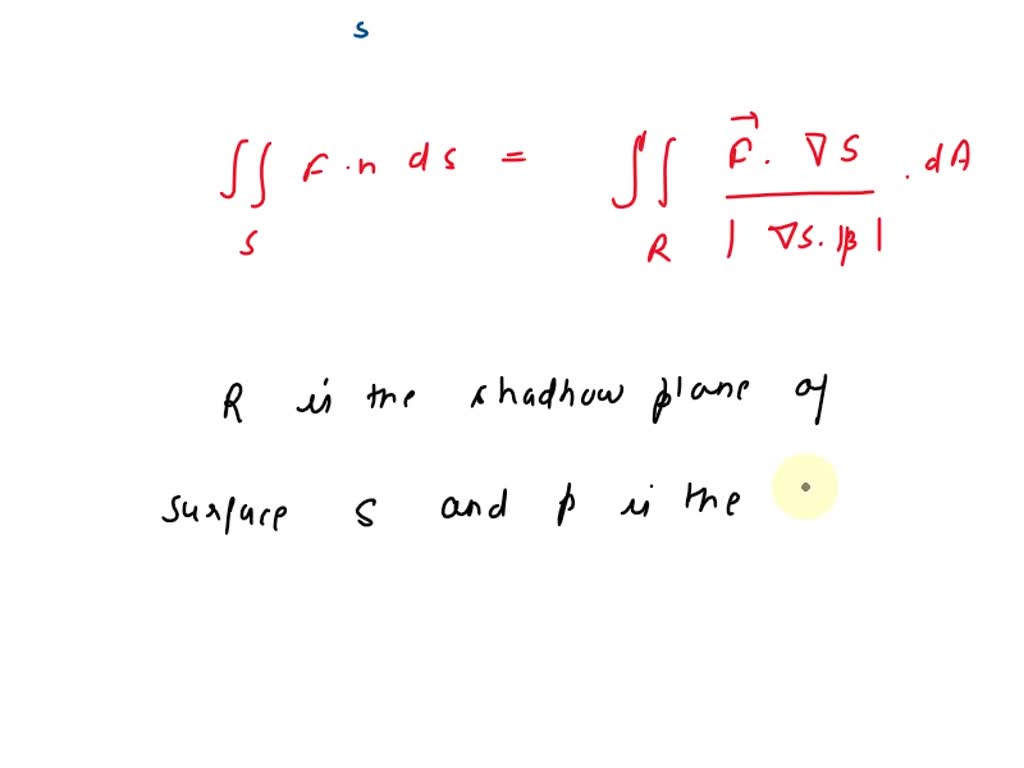 s
∬ F · n ds = ∬ F⃗ · ∇S / |∇S · p| · dA
S R
R is the shadhow plane of
surface S and p is the